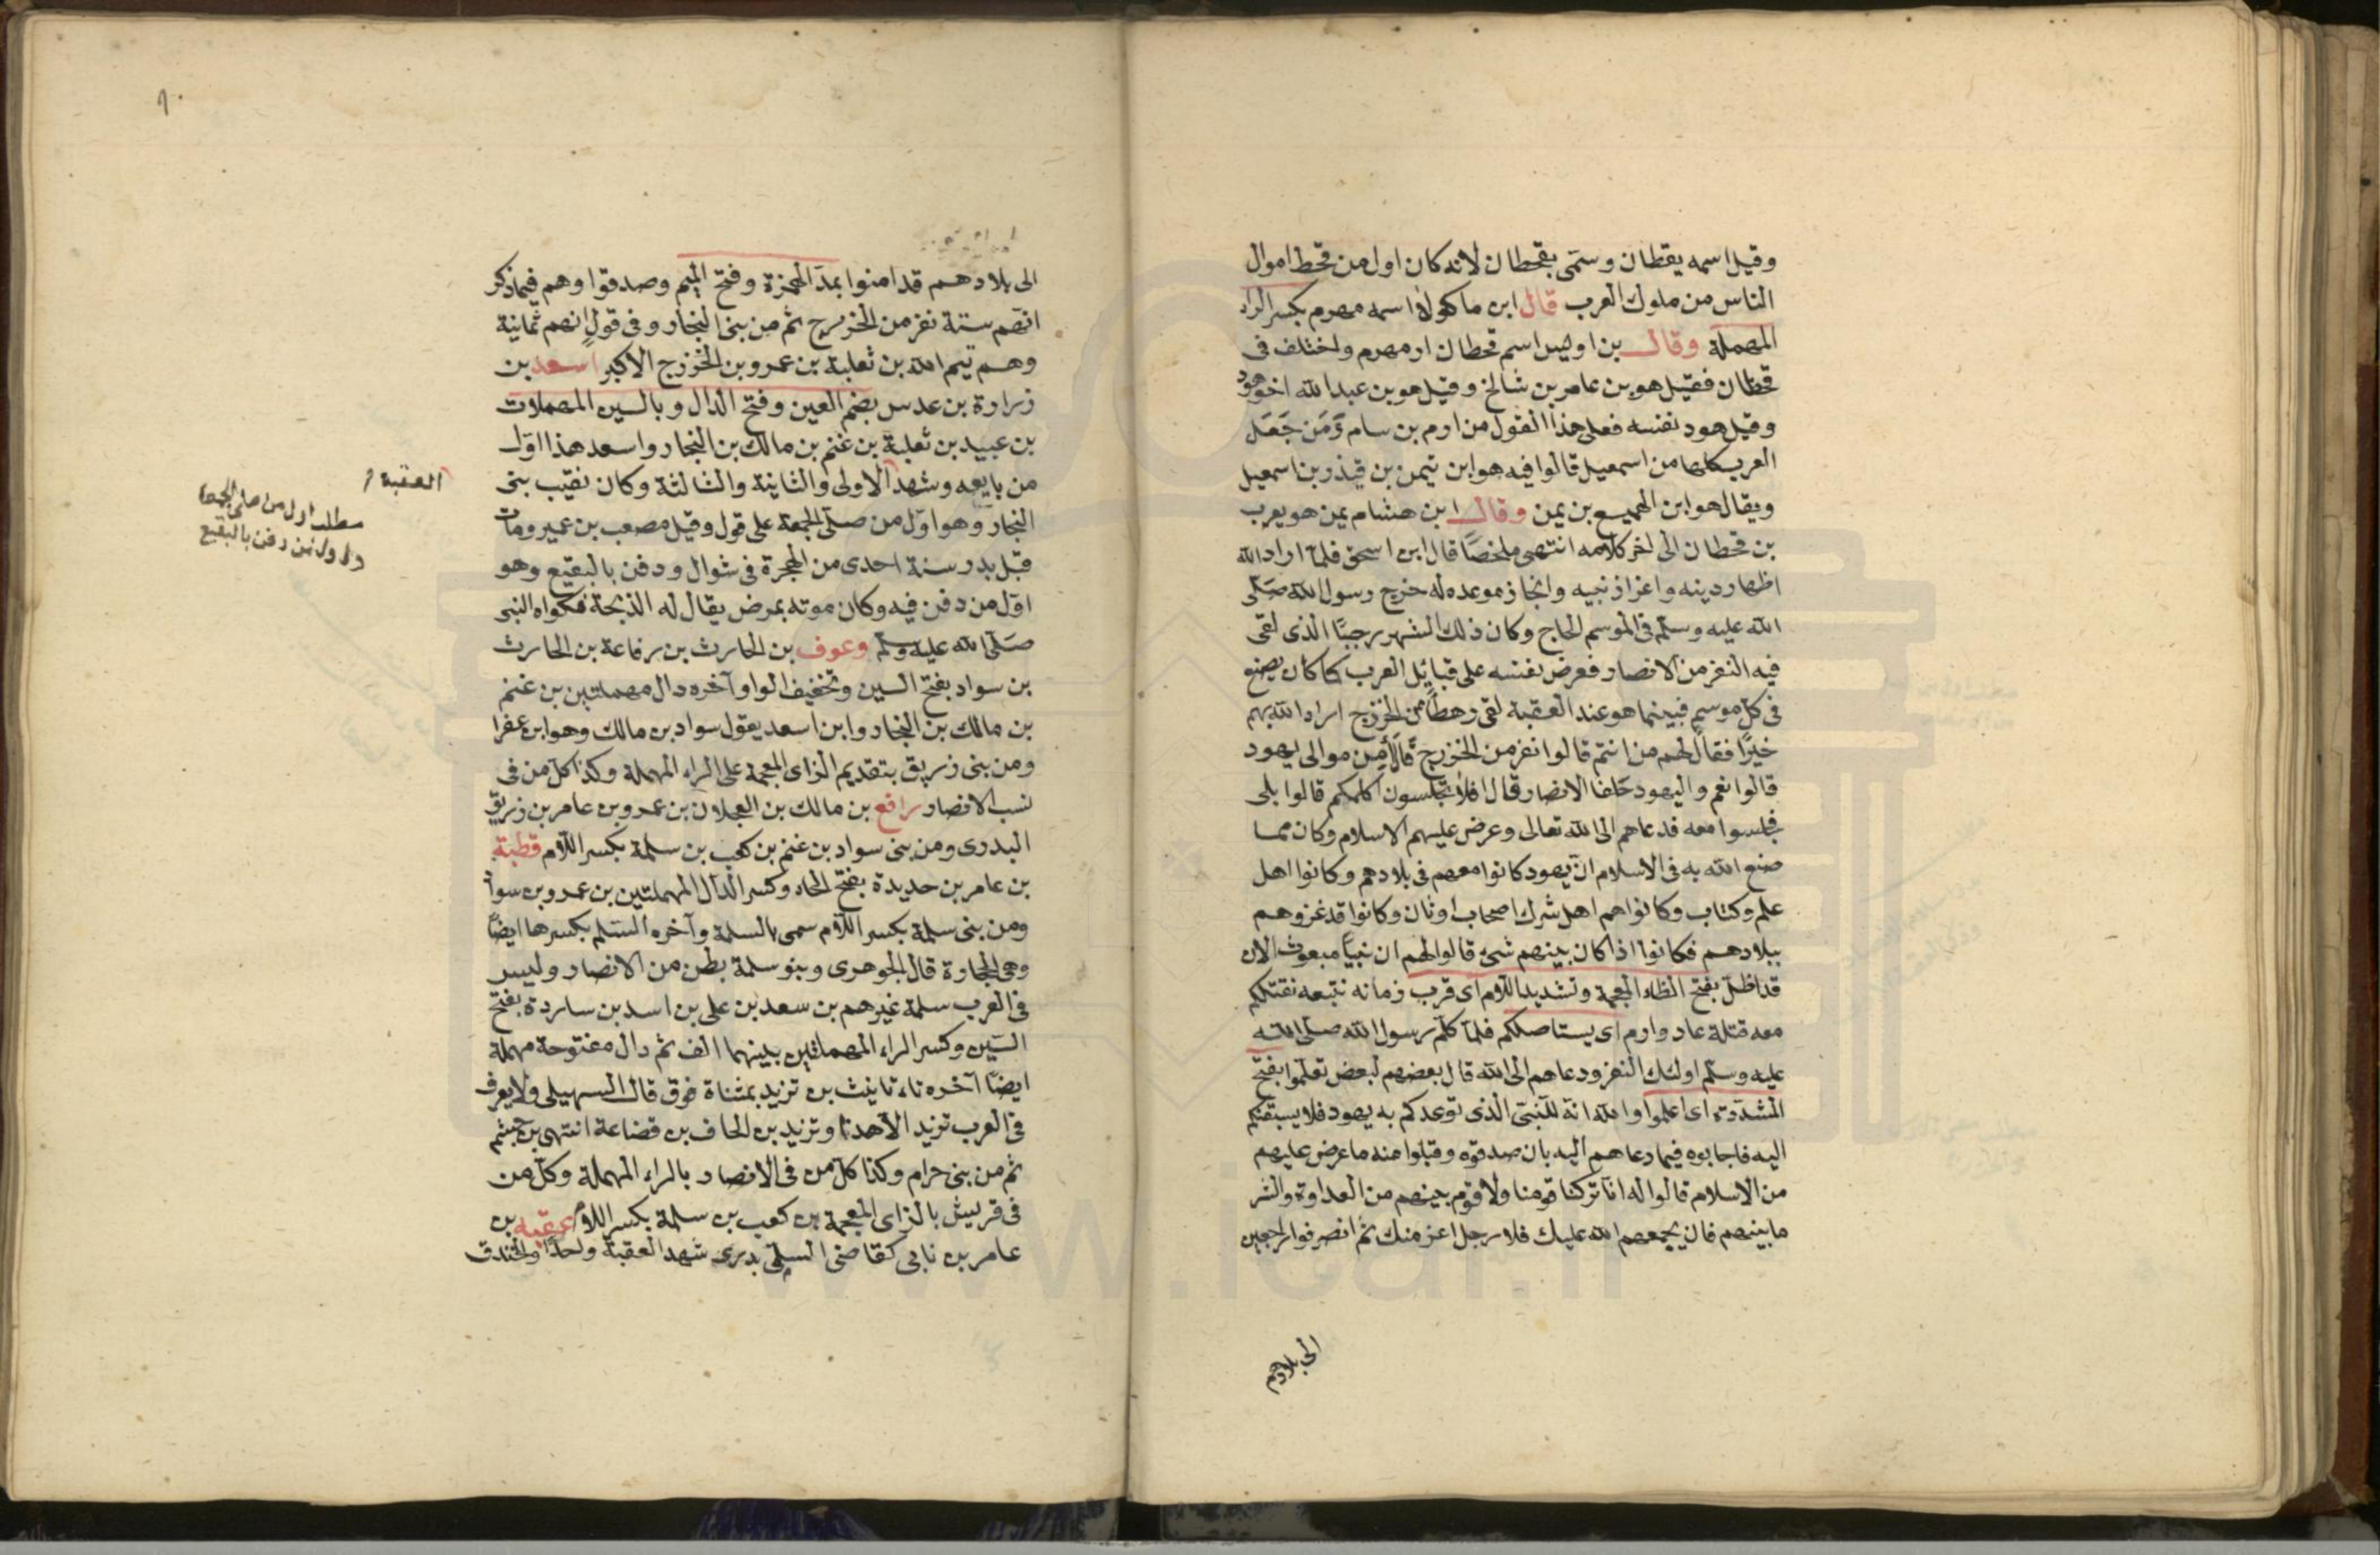 وقيل اسمه يقطان وسمى بقحطان لانه كان اول من قحط اموال
الناس من ملوك العرب قال ابن ماكولا اسمه مهرم بكسر الراء
المهملة وقال بن اويس اسم قحطان ارمهرم واختلف فى
قحطان فقيل هو بن عامر بن شالخ وقيل هو بن عبد الله اخو هود
وقيل هود نفسه فعلى هذا القول من ارم بن سام وَمَن جَعَل
العرب كلها من اسمعيل قالوا فيه هو ابن تيمن بن قيذر بن اسمعيل
ويقال هو ابن الهميسع بن يمن وقال ابن هشام يمن هو يعرب
بن قحطان الى اخر كلامه انتهى ملخصًا قال ابن اسحق فلما اراد الله
اظهار دينه واعزاز نبيه وانجاز موعده له خرج رسول الله صَلّى
الله عليه وسلّم فى الموسم الحاج وكان ذلك الشهر رجبًا الذى لقى
فيه النفر من الانصار فعرض نفسه على قبائل العرب كما كان يصنع
فى كلّ موسم فبينما هو عند العقبة لقى رهطًا من الخزرج اراد الله بهم
خيرًا فقال لهم من انتم قالوا نفر من الخزرج قال أمِن موالى يهود
قالوا نعم واليهود حلفا الانصار قال افلا تجلسون اكلمكم قالوا بلى
فجلسوا معه فدعاهم الى الله تعالى وعرض عليهم الاسلام وكان مما
صنع الله به فى الاسلام انّ يهود كانوا معهم فى بلادهم وكانوا اهل
علم وكتاب وكانوا هم اهل شرك اصحاب اوثان وكانوا قد غزوهم
ببلادهم فكانوا اذا كان بينهم شئ قالوا لهم ان نبيًّا مبعوث الان
قد اظلّ بفتح الظاء المعجمة وتشديد اللام اى قرب زمانه نتبعه نقتلكم
معه قتلة عاد وارم اى يستاصلكم فلمّا كلّم رسول الله صلّى الله
عليه وسلّم اولئك النفر ودعاهم الى الله قال بعضهم لبعض تعلّموا بفتح
المشدّدة اى اعلموا والله انه للنبى الذى توعدكم به يهود فلا يسبقنكم
اليه فاجابوه فيما دعاهم اليه بان صدقوه وقبلوا منه ما عرض عليهم
من الاسلام قالوا له انّا تركنا قومنا ولا قوم بينهم من العداوة والشر
ما بينهم فان يجمعهم الله عليك فلا رجل اعز منك ثم انصرفوا راجعين
الى بلادهم
الى بلادهم قد امنوا بمدّ الهمزة وفتح الميم وصدقوا وهم فيما ذكر
انهم ستة نفر من الخزرج ثم من بنى النجار وفى قولٍ انهم ثمانية
وهم تيم الله بن ثعلبة بن عمرو بن الخزرج الاكبر اسعد بن
زرارة بن عدس بضم العين وفتح الدال وبالسين المهملات
بن عبيد بن ثعلبة بن غنم بن مالك بن النجار واسعد هذا اوّل
من بايعه وشهد الاولى والثانية والثالثة وكان نقيب بنى
النجار وهو اوّل من صلّى الجمعة على قول وقيل مصعب بن عمير ومات
قبل بدر سنة احدى من الهجرة فى شوال ودفن بالبقيع وهو
اوّل من دفن فيه وكان موته بمرض يقال له الذبحة فكواه النبى
صَلّى الله عليه وسلّم وعوف بن الحارث بن رفاعة بن الحارث
بن سواد بفتح السين وتخفيف الواو آخره دال مهملتين بن غنم
بن مالك بن النجار وابن اسعد يقول سواد بن مالك وهو ابن عفرا
ومن بنى زريق بتقديم الزاى المعجمة على الراء المهملة وكذا كلّ من فى
نسب الانصار رافع بن مالك بن العجلان بن عمرو بن عامر بن زريق
البدرى ومن بنى سواد بن غنم بن كعب بن سلمة بكسر اللام قطبة
بن عامر بن حديدة بفتح الحاء وكسر الدّال المهملتين بن عمرو بن سواد
ومن بنى سلمة بكسر اللام سمى بالسلمة وآخره السّلم بكسرها ايضًا
وهى الحجارة قال الجوهرى وبنو سلمة بطن من الانصار وليس
فى العرب سلمة غيرهم بن سعد بن على بن اسد بن ساردة بفتح
السّين وكسر الراء المهملتين بينهما الف ثم دال مفتوحة مهملة
ايضًا آخره تاء تانيث بن تزيد بمثناة فوق قال السهيلى ولا يعرف
فى العرب تزيد الا هذا وتزيد بن الحاف بن قضاعة انتهى بن جشم
ثم من بنى حرام وكذا كلّ من فى الانصار بالراء المهملة وكلّ من
فى قريش بالزاى المعجمة بن كعب بن سلمة بكسر اللام عقبه بن
عامر بن نابى كقاضى السلمى بدرى شهد العقبة واحدًا والخندق
العقبة
مطلب اول من صلى الجمعة
واول من دفن بالبقيع